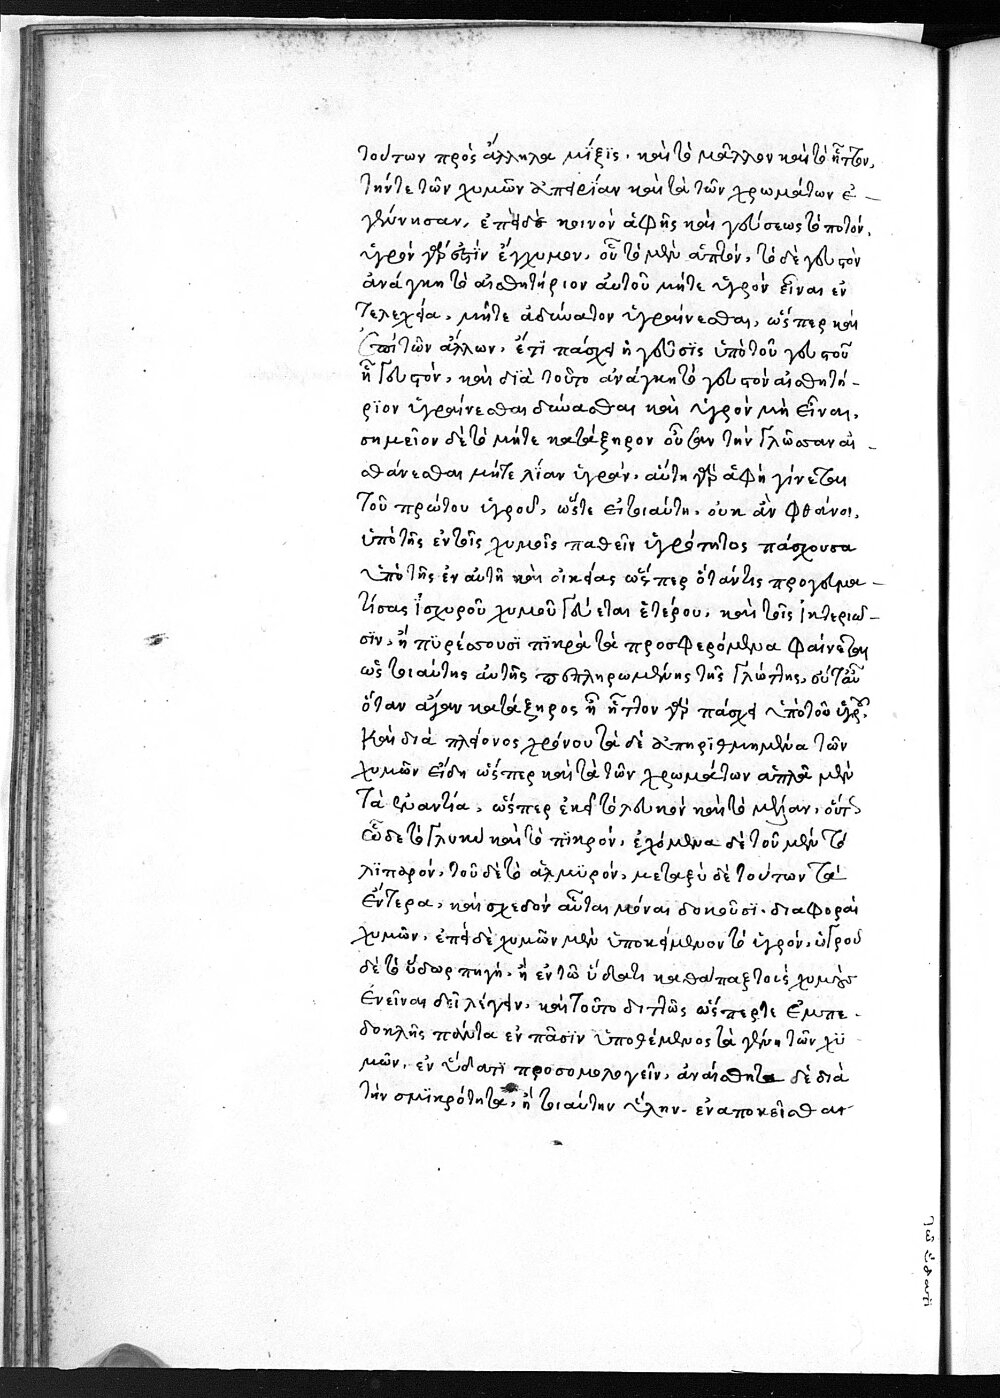 τούτων πρὸς ἄλληλα μῖξϊς. καὶ τὸ μᾶλλον καὶ τὸ ἧττον,
τήν τε τῶν χυμῶν ἀπειρίαν καὶ τὰ τῶν χρωμάτων ἐ-
γέννησαν, ἐπεὶ δὲ κοινὸν ἁφῆς καὶ γεύσεως τὸ ποτόν,
ὑγρὸν γάρ ἐστϊν ἔγχυμον, οὗ τὸ μὲν ἁπτόν, τὸ δὲ γευστὸν
ἀνάγκη τὸ αἰσθητήριον αὐτοῦ μήτε ὑγρὸν εἶναι ἐν
τελεχεία, μήτε ἀδύνατον ὑγραίνεσθαι, ὥσπερ καὶ
ἐπὶ τῶν ἄλλων, ἔτϊ πάσχει ἡ γεῦσϊς ὑπὸ τοῦ γευστοῦ
ἧ γευστόν, καὶ δϊὰ τοῦτο ἀνάγκη τὸ γευστὸν αἰσθητή-
ρϊον ὑγραίνεσθαι δύνασθαι καὶ ὑγρὸν μὴ εἶναι,
σημεῖον δὲ τὸ μήτε κατάξηρον οὖσαν τὴν γλῶσσαν αἰ-
σθάνεσθαι μήτε λΐαν ὑγράν, αὕτη γὰρ ἁφὴ γίνεται
τοῦ πρώτου ὑγροῦ, ὥστε εἰ τοιαύτη, οὐκ ἂν φθάνοι,
ὑπὸ τῆς ἐν τοῖς χυμοῖς παθεῖν ὑγρότητος πάσχουσα
ὑπὸ τῆς ἐν αὐτῆ καὶ οἰκείας ὥσπερ ὅταν τις προγευμα-
τίσας ἰσχυροῦ χυμοῦ γεύεται ἑτέρου, καὶ τοῖς ἰκτεριῶ-
σϊν, ἢ πϋρέσσουσϊ πϊκρὰ τὰ προσφερόμενα φαίνεται
ὡς τοιαύτης αὐτῆς πεπληρωμένης τῆς γλώττης, οὕτω
ὅταν ἄγαν κατάξηρος ἦ ἧττον γὰρ πάσχει ὑπὸ τοῦ ὑγροῦ,
καὶ διὰ πλείονος χρόνου τὰ δὲ ἀπηρϊθμημένα τῶν
χυμῶν εἴδη ὥσπερ καὶ τὰ τῶν χρωμάτων ἁπλᾶ μὲν
τὰ ἐναντία, ὥσπερ ἐκεῖ τὸ λευκὸν καὶ τὸ μέλαν, οὕτως
ὧδε τὸ γλυκὺ καὶ τὸ πϊκρόν, ἐχόμενα δὲ τοῦ μὲν τὸ
λϊπαρόν, τοῦ δὲ τὸ ἁλμϋρόν, μεταξὺ δὲ τούτων τὰ
ἕτερα, καὶ σχεδὸν αὗται μόναι δοκοῦσϊ. διαφοραὶ
χυμῶν, ἐπεὶ δὲ χυμῶν μὲν ὑποκείμενον τὸ ὑγρόν, ὑγροῦ
δὲ τὸ ὕδωρ πηγή, ἢ ἐν τῶ ὕδατι καθάπαξ τοὺς χυμοὺς
ἐνεῖναι δεῖ λέγειν, καὶ τοῦτο διττῶς ὥσπερ τε Ἐμπε-
δοκλῆς πάντα ἐν πᾶσϊν ὑποθέμενος τὰ γένη τῶν χϋ
μῶν, ἐν ὕδατϊ προσομολογεῖν, ἀναίσθητα δὲ διὰ
τὴν σμϊκρότητα, ἢ τοιαύτην ὕλην. ἐναποκεῖσθαι
τῶ ὕδατϊ